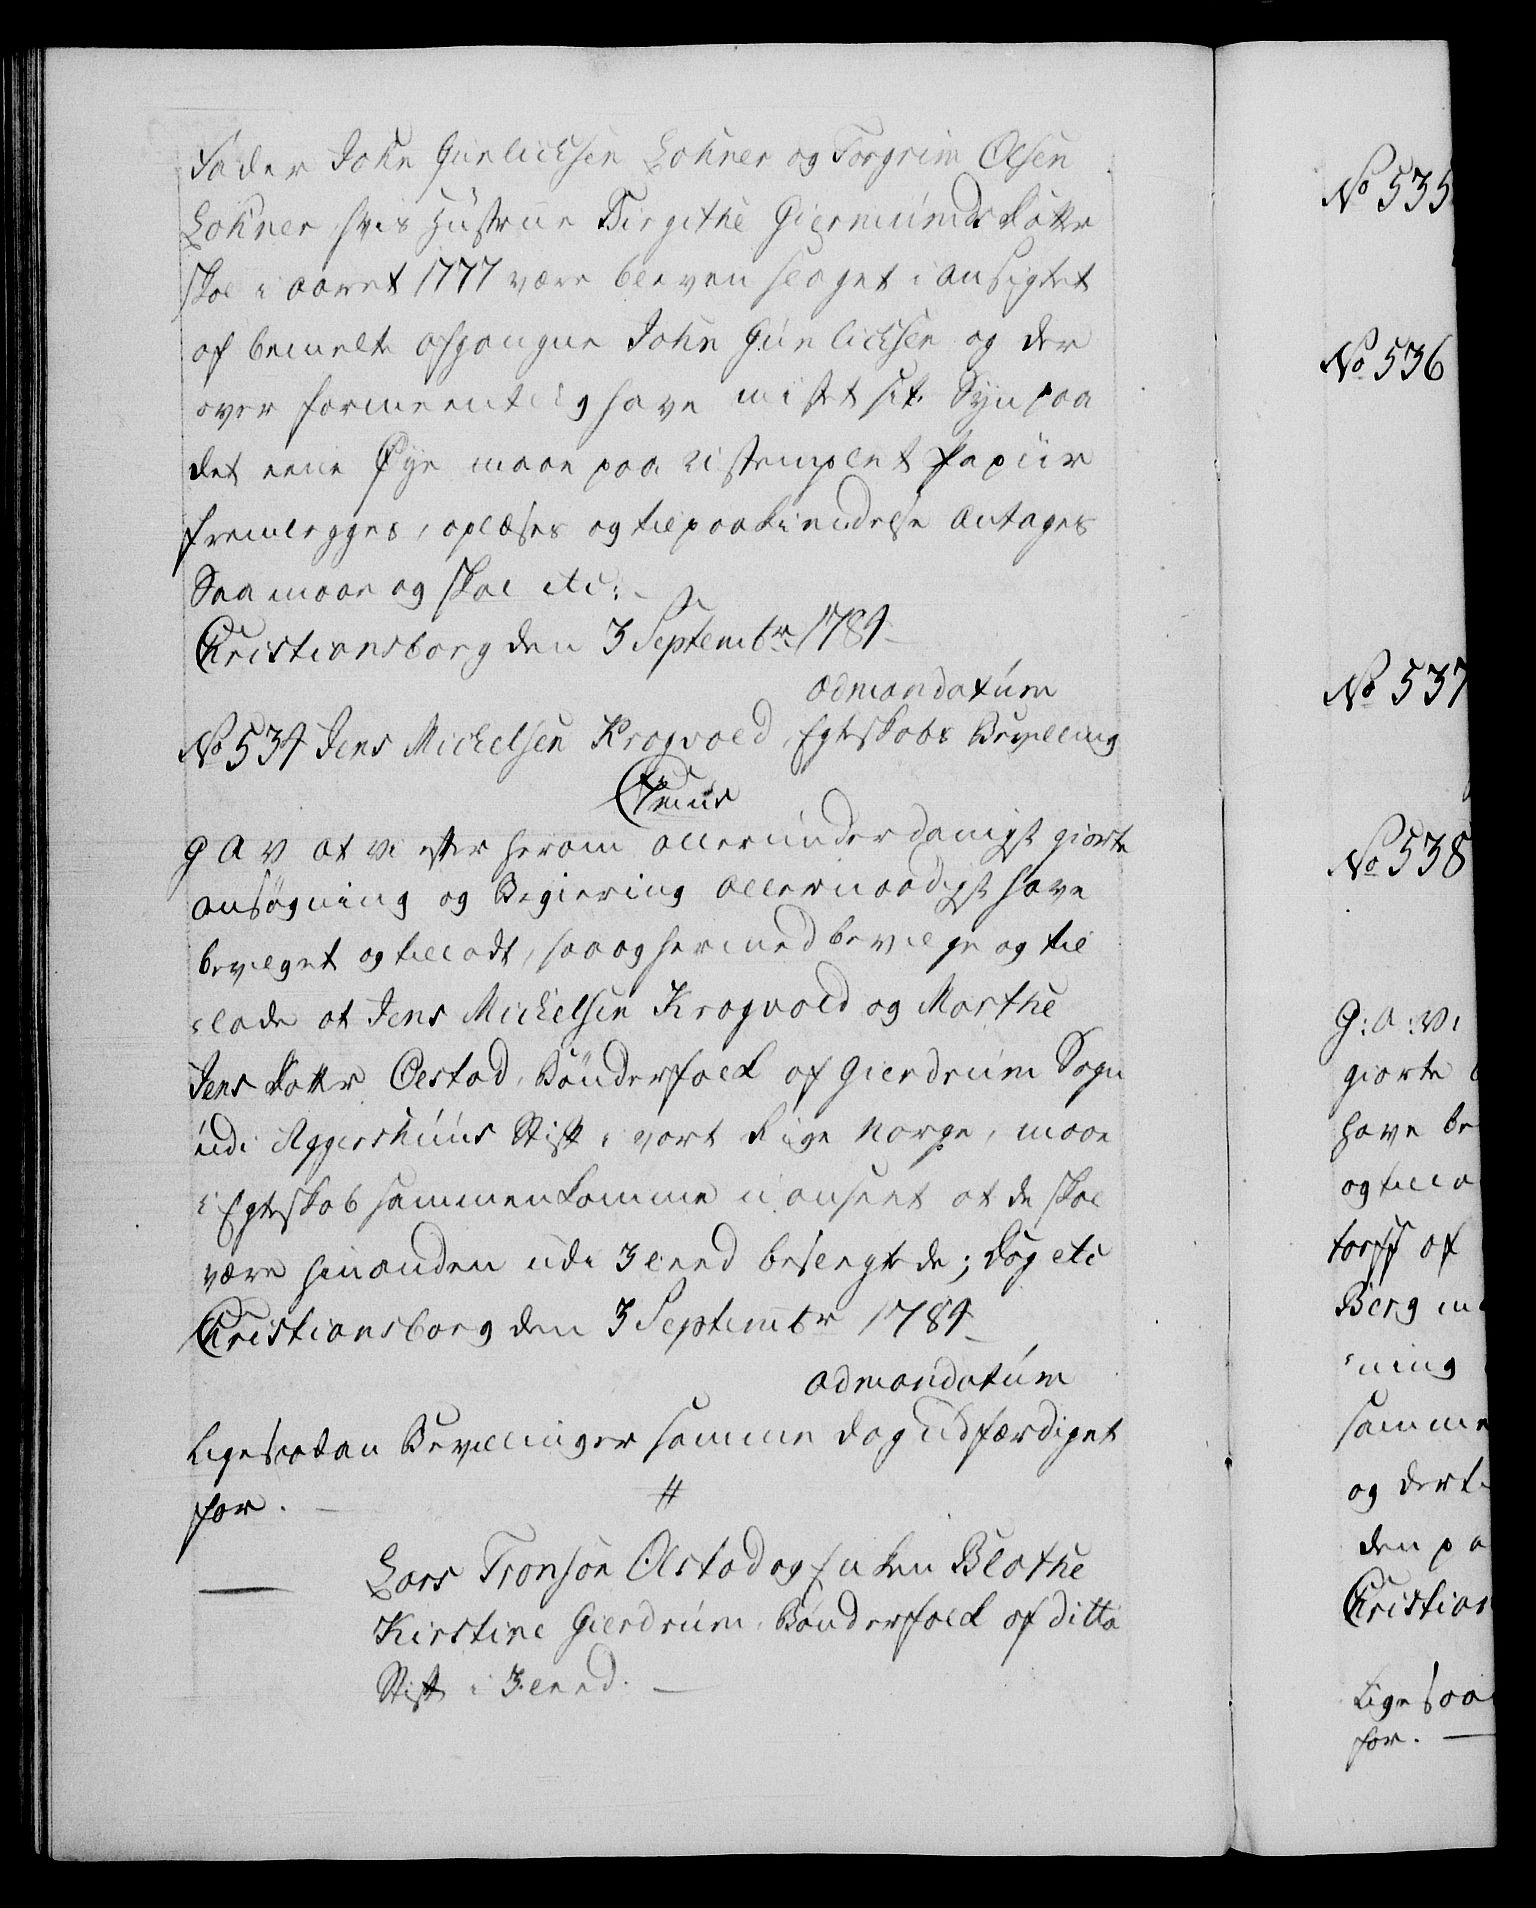 Fader John Gunlichsen Lohner og Torgrim Olsen
Lohner, hvis Hustrue Birgithe Giermunds dotter
skal i aaret 1777 være bleven slaget i ansigtet
af bemelte afgangne John Gunlichsen og der
over formeentlig have mistet sit Syn paa
det eene Øye maae paa ustemplet Papiir
fremlegges, oplæses og til paakiendelse antages
Saa maae og skal etc:
Christiansborg den 3 Septembr: 1784
admandatum
No 534 Jens Michelsen Krogvold, Egteskabs Bevilling
Tenus
G A V at vi efter herom allerunderdanigst giorte
ansøgning og Begiering allernaadigst have
bevilget og tilladt, saa og hermed bevilge og til
lade at Jens Michelsen Krogvold og Marthe
Jens dotter Olstad, Bønderfolck af Gierdrum Sogn
udi Aggershuus Stift i vort Rige Norge, maae
i Egteskab sammenkomme uanseet at de skal
være hinanden udi 3 leed beslegtede; dog etc
Christiansborg den 3 Septembr 1784
admandatum
Ligesaadan Bevillinger samme dag udfærdiget
for.
Lars Tronsøn Olstad og Enken Blathe
Kirstine Gierdrum, Bønderfolck af ditto
Stift i 3. leed.
No 535
No 536
No 537
No 538
G: A: V:
giorte
have be
og tilla
torff af
Berg
ning
samme
og dert
den pa
Christian
Ligesaa
for.